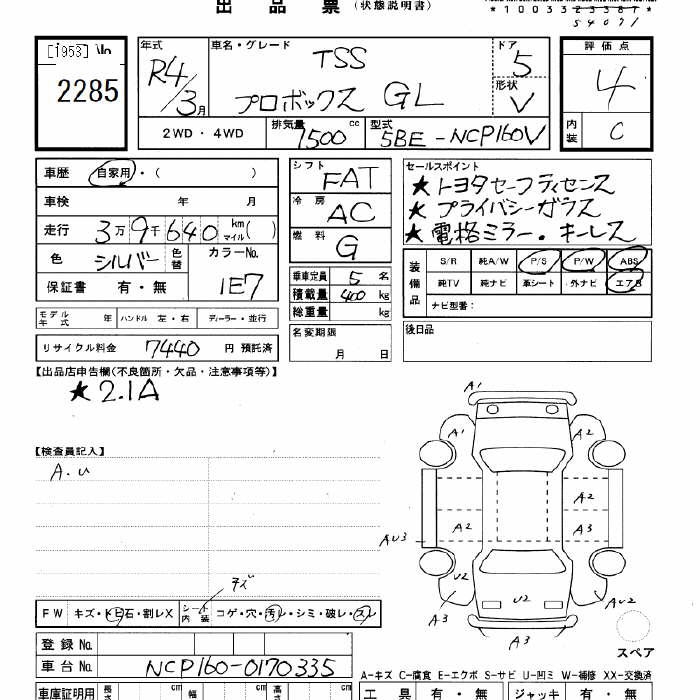 出品票 (状態説明書)
*10033
54071
[1953]
2285
年式
R4/3月
車名・グレード
TSS
プロボックス GL
ドア
5
形状
V
評価点
4
内装
C
2WD・4WD
排気量 1500 cc
型式 5BE-NCP160V
車歴 自家用・( )
車検 年 月
走行 3万9千640 km マイル( )
色 シルバー 色替 カラーNo. 1E7
保証書 有・無
モデル年式 年 ハンドル 左・右 ディーラー・並行
リサイクル料金 7440 円 預託済
シフト FAT
冷房 AC
燃料 G
乗車定員 5 名
積載量 400 kg
総重量 kg
名変期限
月 日
セールスポイント
★トヨタセーフティセンス
★プライバシーガラス
★電格ミラー・キーレス
装備品
S/R 純A/W P/S P/W ABS
純TV 純ナビ 革シート 外ナビ エアB
ナビ型番:
後日品
【出品店申告欄(不良箇所・欠品・注意事項等)】
★2.1A
【検査員記入】
A.U
キズ
FW キズ・トビ石・割レX シート内装 コゲ・穴・汚レ・シミ・破レ・スレ
登録No.
車台No. NCP160-0170335
車庫証明用 長さ cm 幅 cm 高さ cm
A1
A1
A2
A2
A2
A3
AU3
U2
U2
AU2
A3
A3
スペア
A-キズ C-腐食 E-エクボ S-サビ U-凹ミ W-補修 XX-交換済
工具 有・無 ジャッキ 有・無